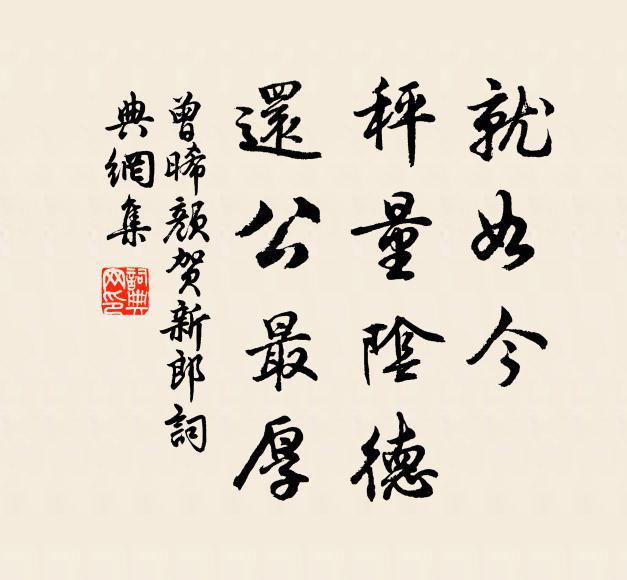 就如今
秤量陰德
還公最厚
曾晞顏賀新郎詞
典網集
詞典
网印